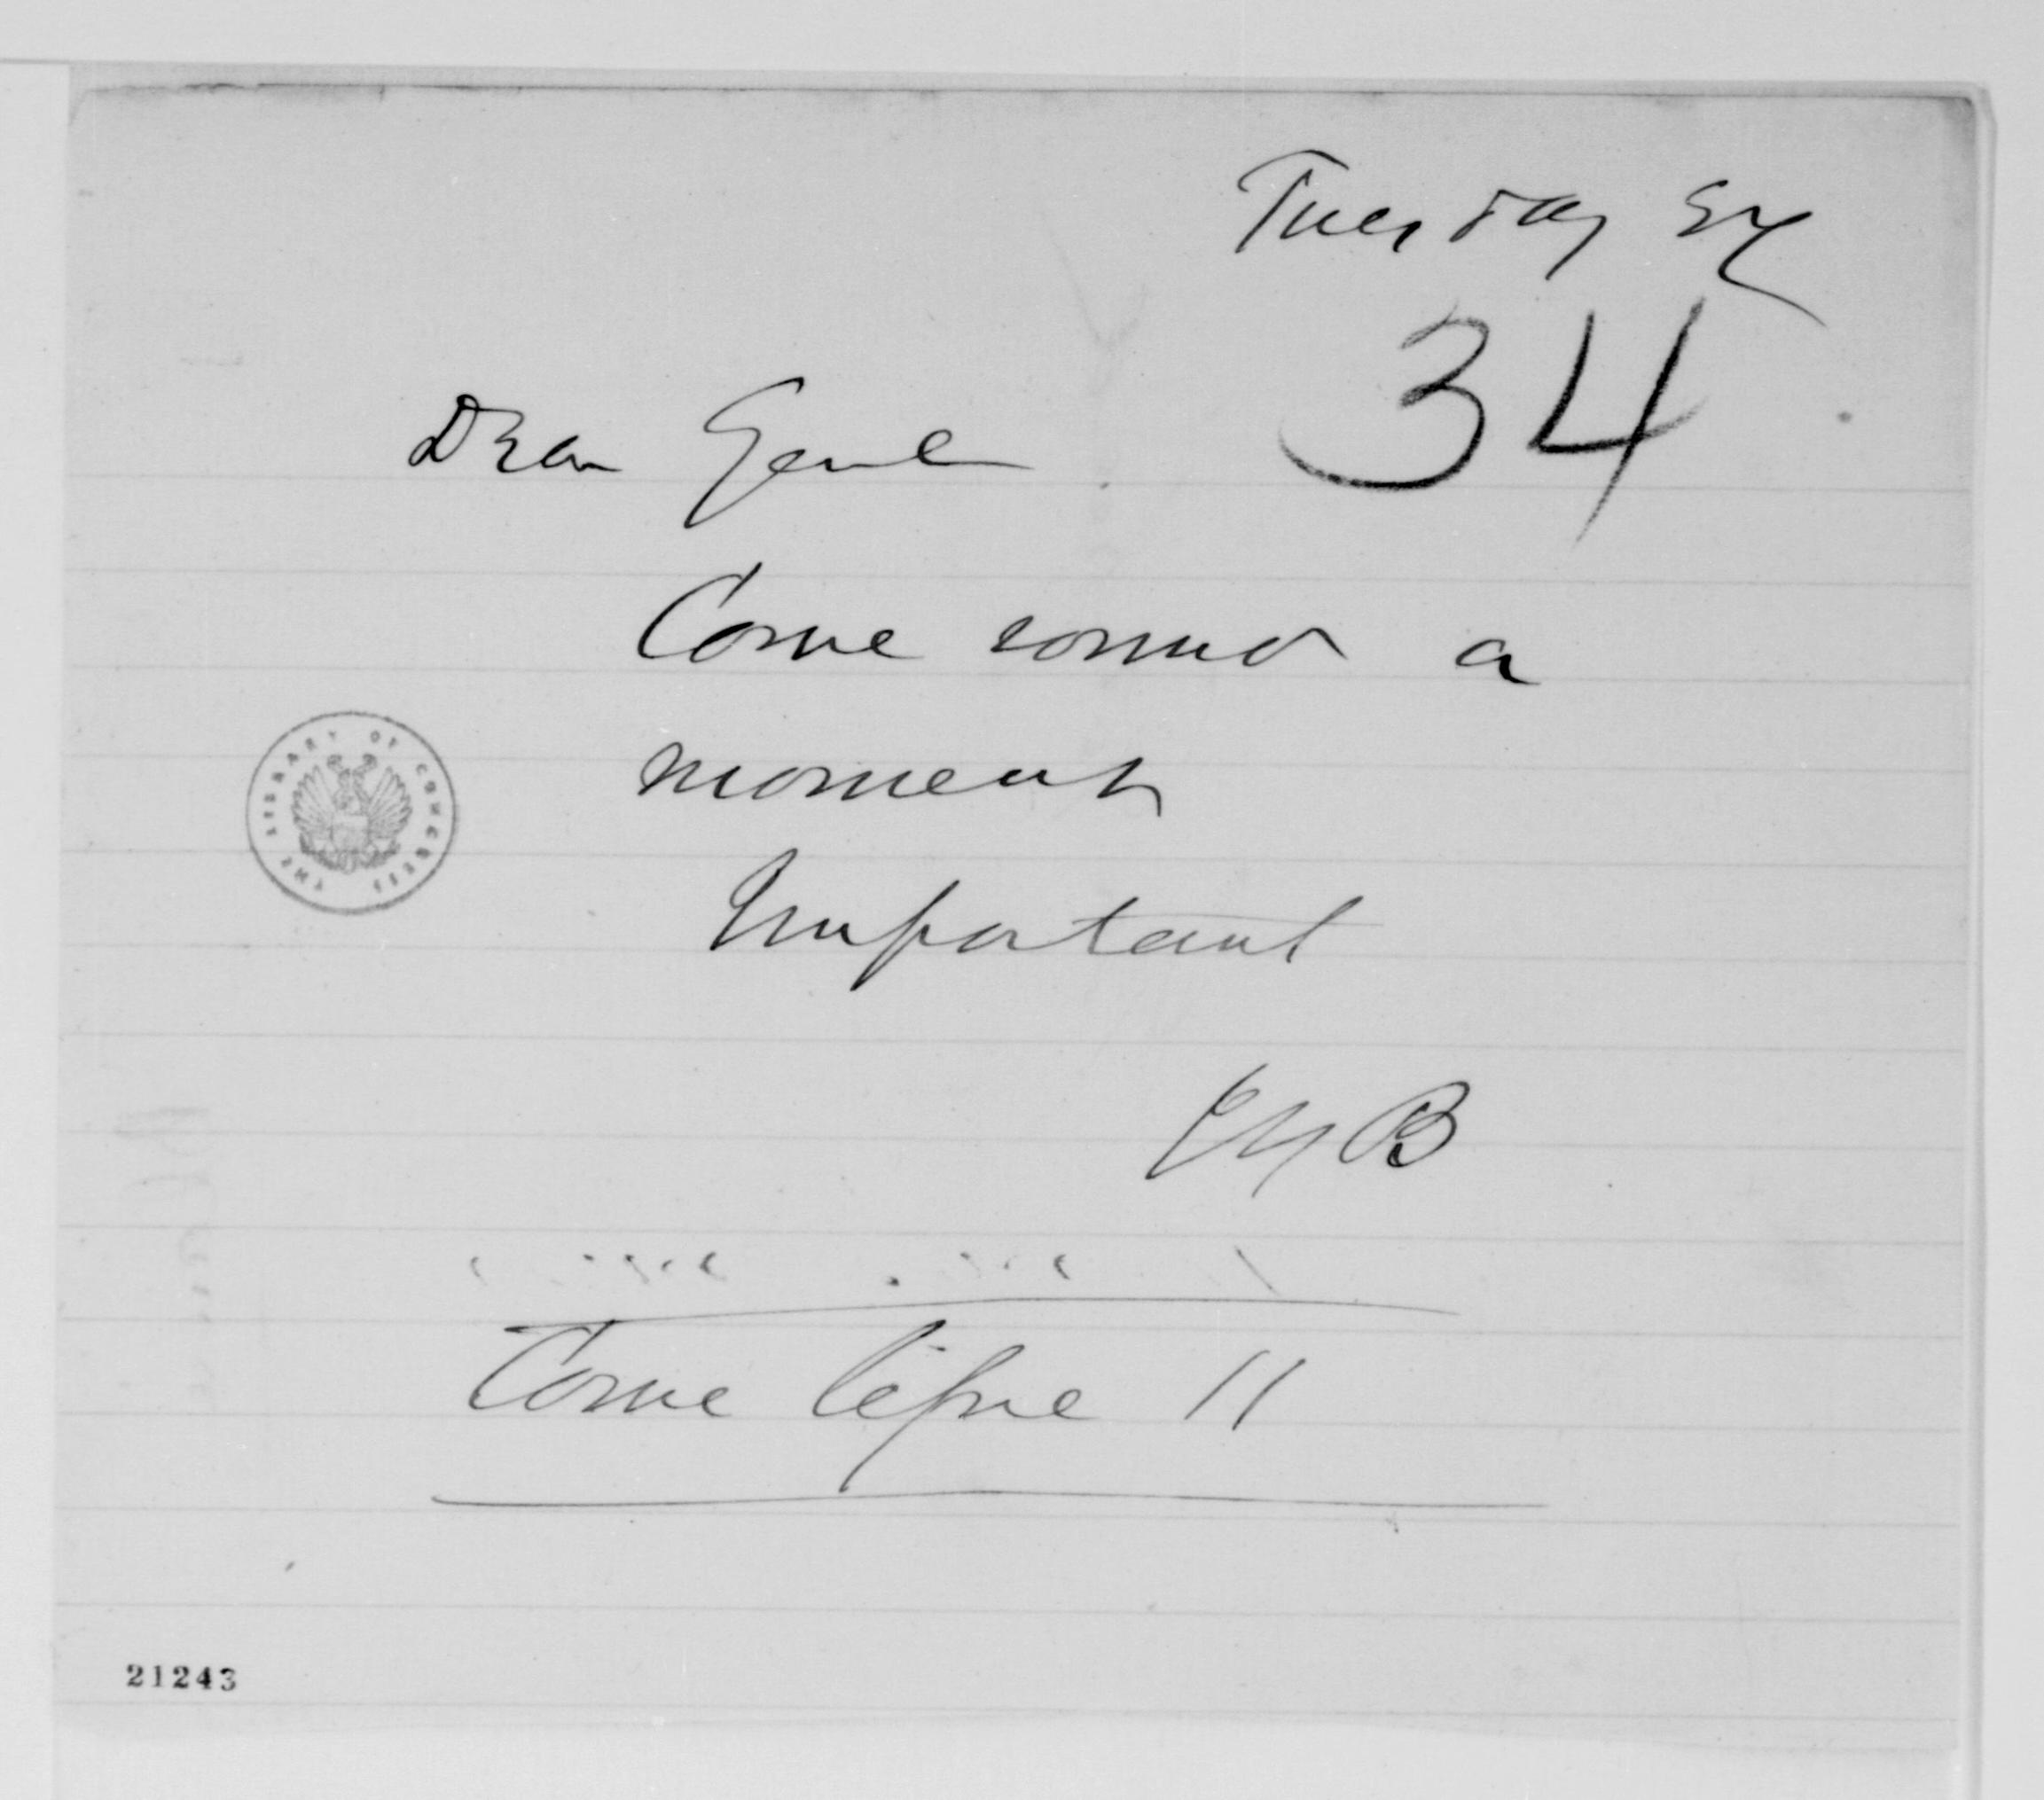 Tuesday Ev
34
Dear Genl
Come round a
moment
THE LIBRARY OF CONGRESS
Important
B
Come before 11
21243